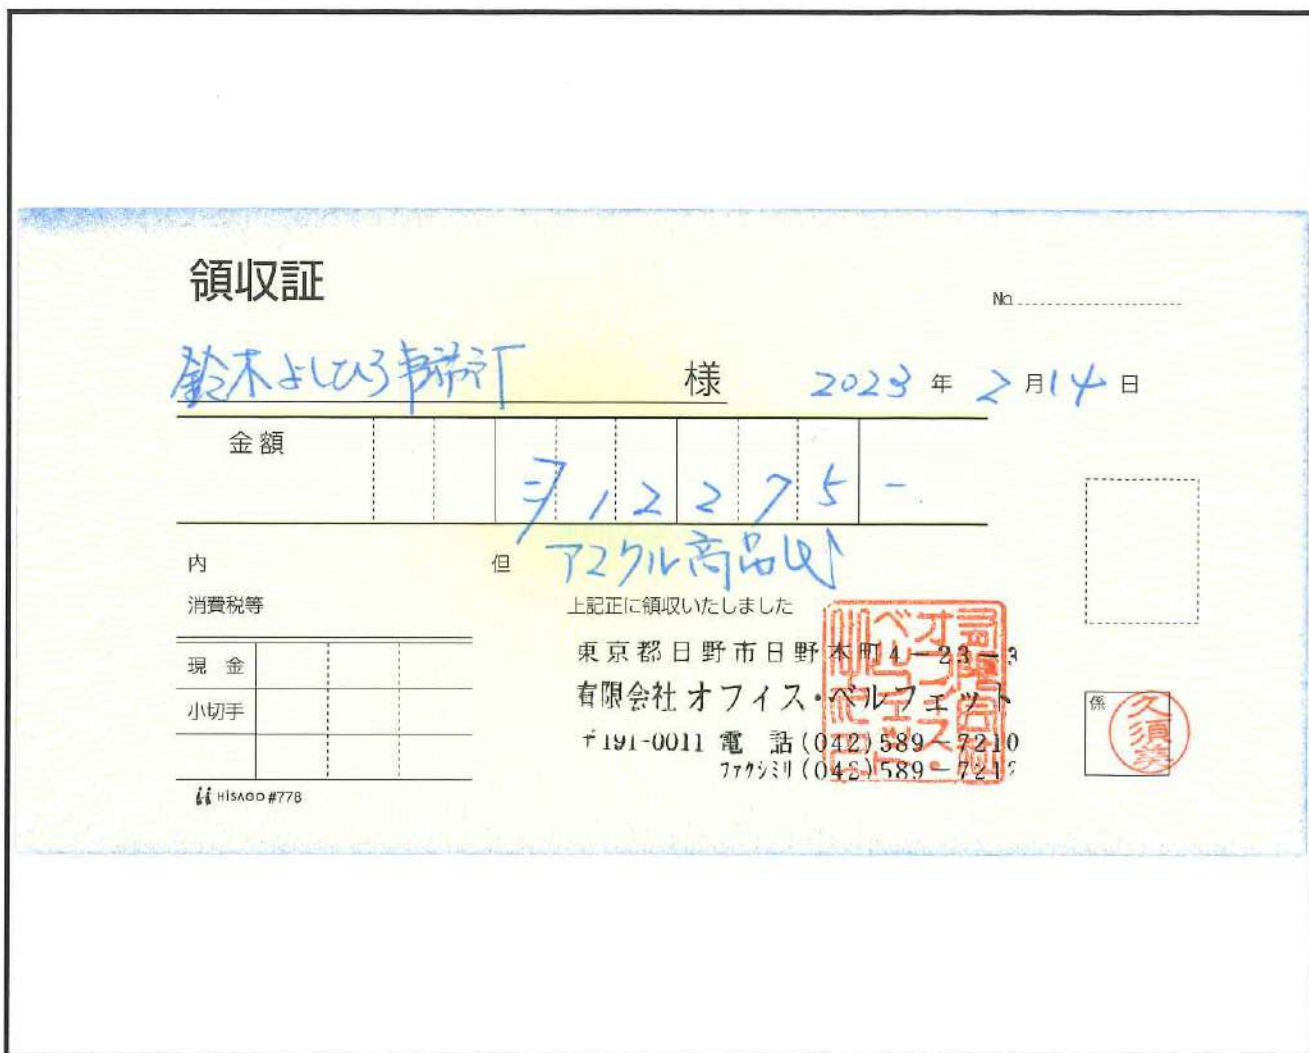 領収証
No
鈴木よしひろ事務所 様 2023年 2月14日
金額 ¥12275-
内 但 アスクル商品代
消費税等
上記正に領収いたしました
現金
小切手
東京都日野市日野本町4-23-3
有限会社 オフィス・ベルフェット
〒191-0011 電 話(042)589-7210
ファクシミリ(042)589-7212
係
久須美
HISAGO #778